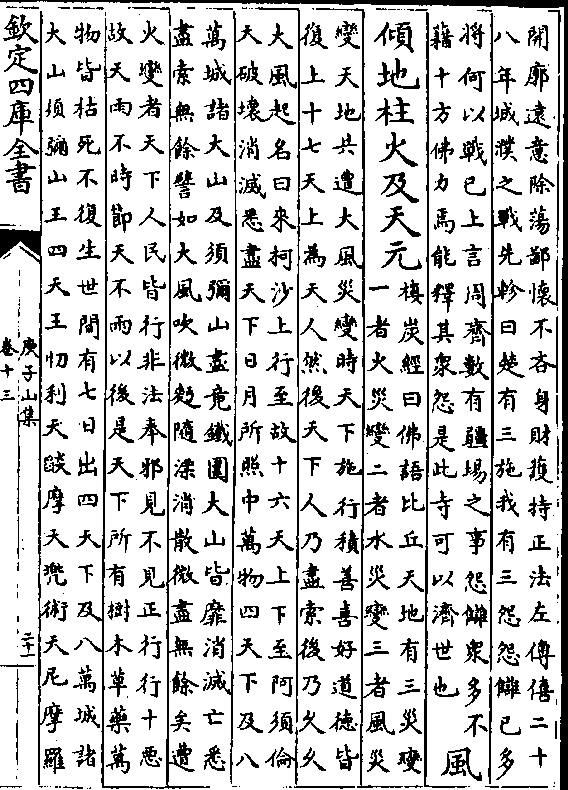 開廓遠意除蕩鄙懷不吝身財護持正法左傳僖二十
八年城濮之戰先軫曰楚有三施我有三怨怨讎已多
將何以戰已上言周齊數有疆場之事怨讎衆多不
藉十方佛力焉能釋其衆怨是此寺可以濟世也
風
傾地柱火及天元
樓炭經曰佛語比丘天地有三災變
一者火災變二者水災變三者風災
變天地共遭大風災變時天下施行積善喜好道德皆
復上十七天上為天人然後天下人乃盡索後乃乆乆
大風起名曰來柯沙上行至故十六天上下至阿須倫
天破壞消滅悉盡天下日月所照中萬物四天下及八
萬城諸大山及須彌山盡竟鐵圍大山皆靡消滅亡悉
盡索無餘譬如大風吹微麨隨深消散微盡無餘矣遭
火變者天下人民皆行非法奉邪見不見正行行十惡
故天雨不時節天不雨以後是天下所有樹木草藥萬
物皆枯死不復生世間有七日出四天下及八萬城諸
大山須彌山王四天王忉利天燄摩天兜術天尼摩羅
欽定四庫全書
庾子山集
卷十三
二十一